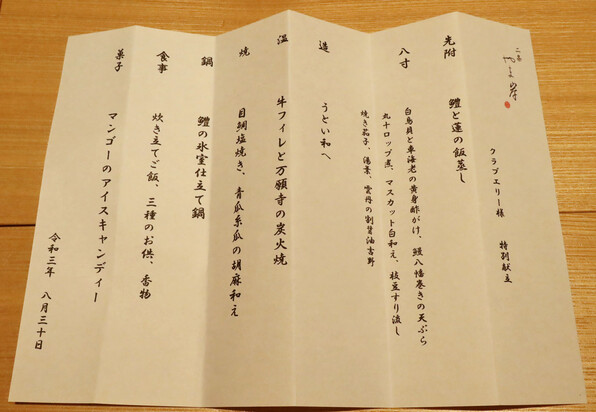 クラブエリー様 特別献立
先附 鱧と蓮の飯蒸し
八寸 白鳥貝と車海老の黄身酢がけ、鰻八幡巻きの天ぷら
丸十ロップ煮、マスカット白和え、枝豆すり流し
焼き茄子、湯葉、雲丹の割醤油吉野
造 うとい和へ
温 牛フィレと万願寺の炭火焼
焼 目鯛塩焼き、青瓜糸瓜の胡麻和え
鍋 鱧の氷室仕立て鍋
食事 炊き立てご飯、三種のお供、香物
菓子 マンゴーのアイスキャンディー
令和三年 八月三十日